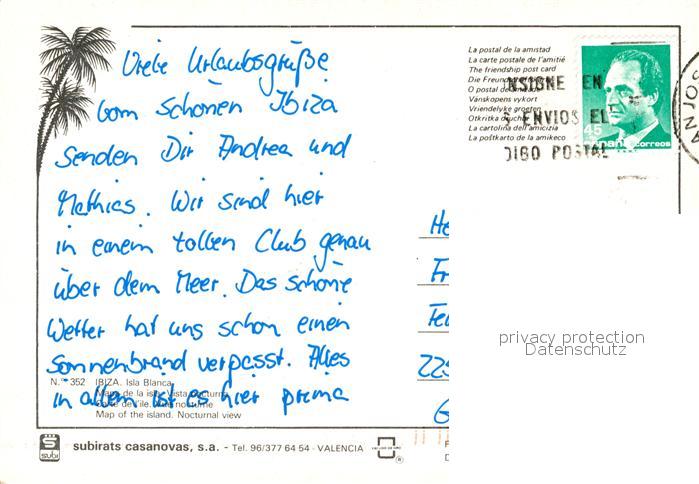 Viele Urlaubsgrüße
vom schönen Ibiza
senden Dir Andrea und
Mathias. Wir sind hier
in einem tollen Club genau
über dem Meer. Das schöne
Wetter hat uns schon einen
Sonnenbrand verpasst. Alles
in allem ist es hier prima
La postal de la amistad
La carte postale de l'amitié
The friendship post card
Die Freun
O postal d
Vänskapens vykort
Vriendelyke groeten
Otkritka
La cartolina dell'amicizia
La poŝtkarto de la amikeco
NSIGNE EN
S ENVIOS EL
DIGO POSTAL
45
correos
He
Fr
Fe
22
G
privacy protection
Datenschutz
N.º 352 IBIZA. Isla Blanca.
Mapa de la isla. Vista nocturna
Carte de l'ile. Vue nocturne
Map of the island. Nocturnal view
subi
subirats casanovas, s.a. - Tel. 96/377 64 54 - VALENCIA